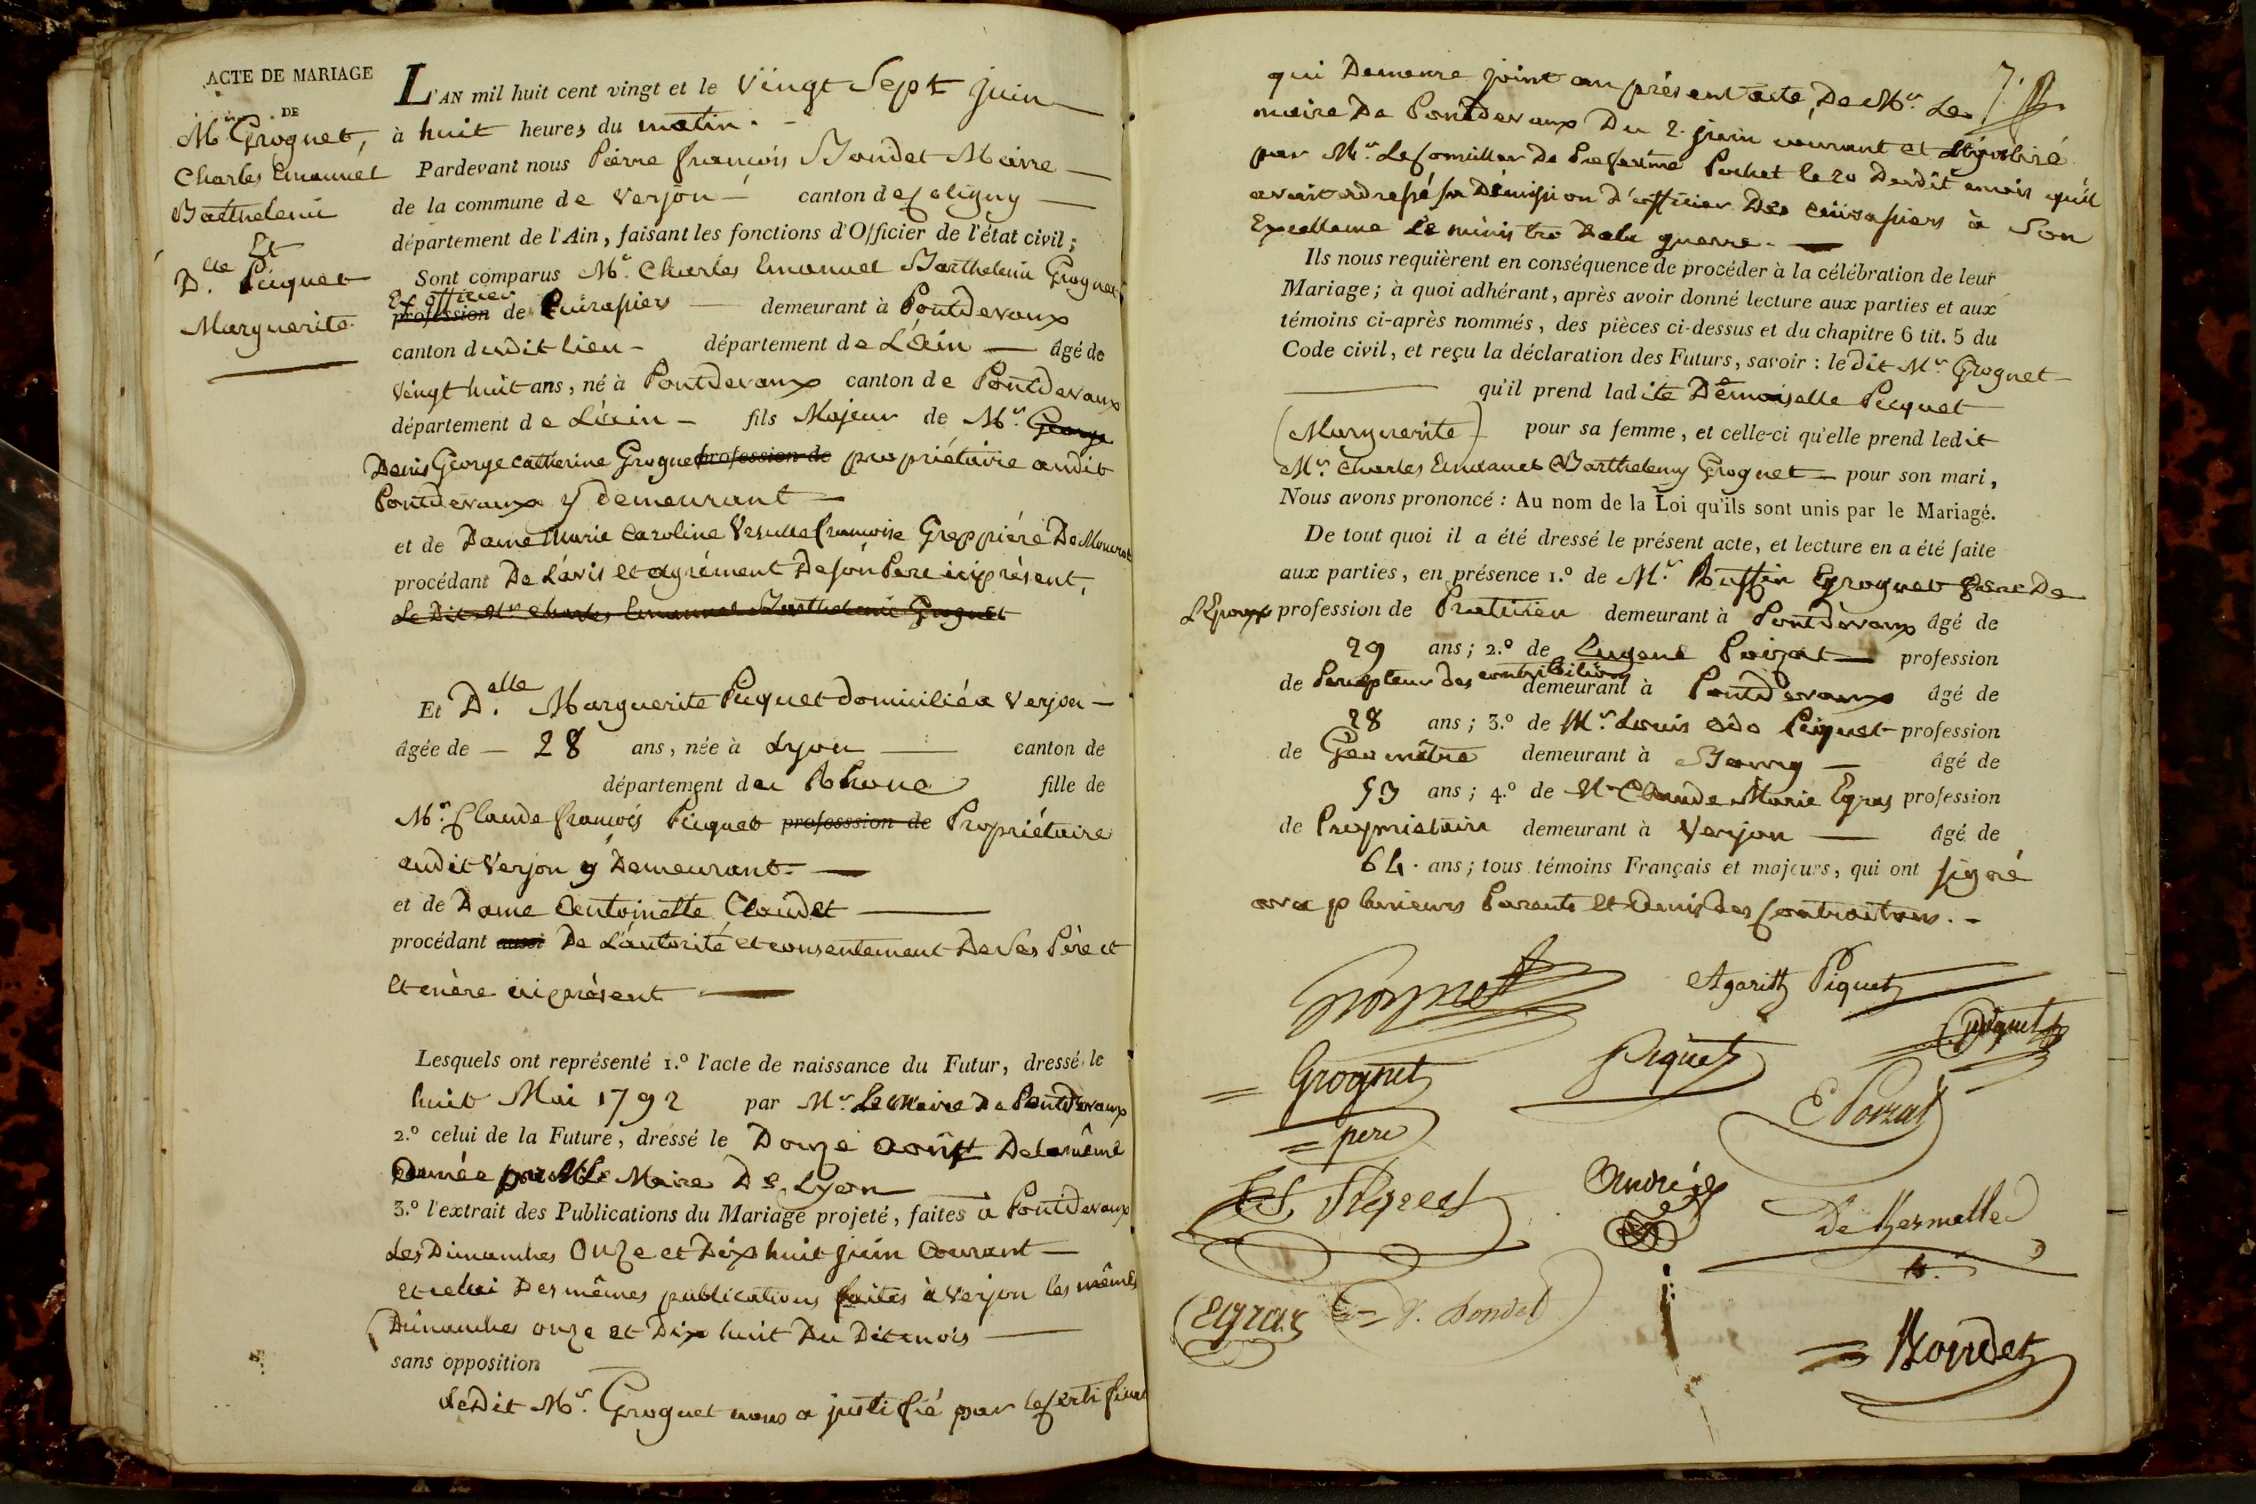 ACTE DE MARIAGE
DE
Mr Grognet,
Charles Emanuel
Barthelemi
Et
Dlle. Piquet
Marguerite
L'AN mil huit cent vingt et le Vingt Sept juin
à huit heures du matin.
Pardevant nous Pierre françois Bondet Maire
de la commune de Verjon canton de Coligny
département de l'Ain, faisant les fonctions d'Officier de l'état civil;
Sont comparus Mr. Charles Emanuel Barthelemi Grognet,
Ex officier
profession de Cuirassiers demeurant à Pontdevaux
canton dudit lieu département de L'ain âgé de
Vingt huit ans, né à Pontdevaux canton de Pontdevaux
département de L'ain fils Majeur de Mr. George
Denis George Catherine Grognet profession de propriétaire audit
Pontdevaux y demeurant
et de Dame Marie Caroline Ursulle françoise Greppiére De Moncroc
procédant De L'avis et agrément De son Pere ici présent,
Le Dit Mr Charles Emanuel Barthelemi Grognet
Et Dlle. Marguerite Piquet domiciliée a Verjon
âgée de 28 ans, née à Lyon canton de
département du Rhone fille de
Mr. Claude françois Piquet professsion de Propriétaire
audit Verjon y Demeurant.
et de Dame Antoinette Claudet
procédant aussi De L'autorité et consentement De Ses Père et
Et mère ici présent
Lesquels ont représenté 1.º l'acte de naissance du Futur, dressé le
huit Mai 1792 par Mr. Le Maire De Pontdevaux
2.º celui de la Future, dressé le Douze Août De la même
année par Mr Le Maire De Lyon
3.º l'extrait des Publications du Mariage projeté, faites à Pontdevaux
Les Dimanches Onze et Dix huit juin Courant
et celui Des mêmes publications faites à Verjon les mêmes
Dimanches onze et Dix huit Du Dit mois
sans opposition
Le Dit Mr. Grognet nous a justifié par le Certificat
7.
qui Demeure joint au présent acte, De Mr. Le
maire De Pontdevaux Du 2. juin courant et
par Mr. Le Conseiller De Prefecture Pochet le 20 Dudit mois qu'il
avait adressé sa Démission d'officier Des Cuirassiers à Son
Excellence Le ministre De la guerre.
Ils nous requièrent en conséquence de procéder à la célébration de leur
Mariage; à quoi adhérant, après avoir donné lecture aux parties et aux
témoins ci-après nommés, des pièces ci-dessus et du chapitre 6 tit. 5 du
Code civil, et reçu la déclaration des Futurs, savoir: le dit Mr. Grognet
qu'il prend ladite Demoiselle Picquet
(Marguerite) pour sa femme, et celle-ci qu'elle prend ledit
Mr. Charles Emanuel Barthelemy Grognet pour son mari,
Nous avons prononcé: Au nom de la Loi qu'ils sont unis par le Mariage.
De tout quoi il a été dressé le présent acte, et lecture en a été faite
aux parties, en présence 1.º de Mr. Ruffin Grognet frere De
L'Epoux profession de Praticien demeurant à Pontdevaux âgé de
29 ans; 2.º de Eugene Poizat profession
de Percepteur des contributions demeurant à Pontdevaux âgé de
28 ans; 3.º de Mr. Louis Odo Piquet profession
de Géomètre demeurant à Bourg âgé de
53 ans; 4.º de Mr Claude Marie Egras profession
de Propriétaire demeurant à Verjon âgé de
64. ans; tous témoins Français et majeurs, qui ont signé
avec plusieurs Parents et Amis des Contractans.
Grognet
Agarith Piquet
Piquet
Grognet
père
Piquet
E Poizat
Piquet
Andrié
De Thermelle
Egras
Bondet